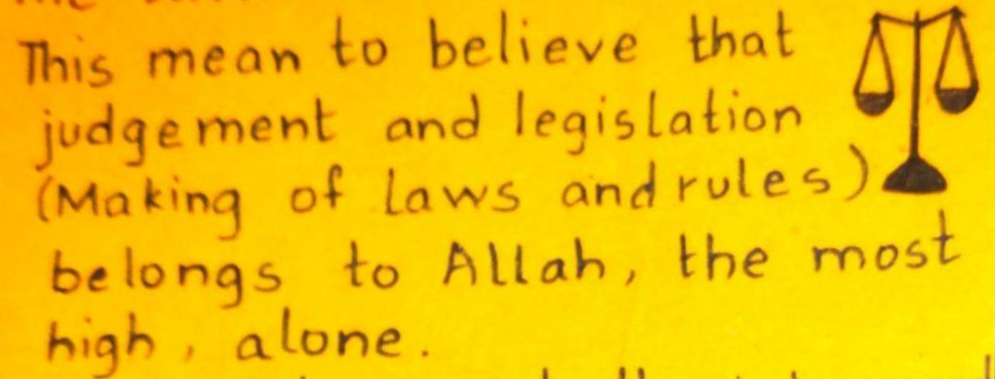 This mean to believe that
judgement and legislation
(Making of laws and rules)
belongs to Allah, the most
high, alone.